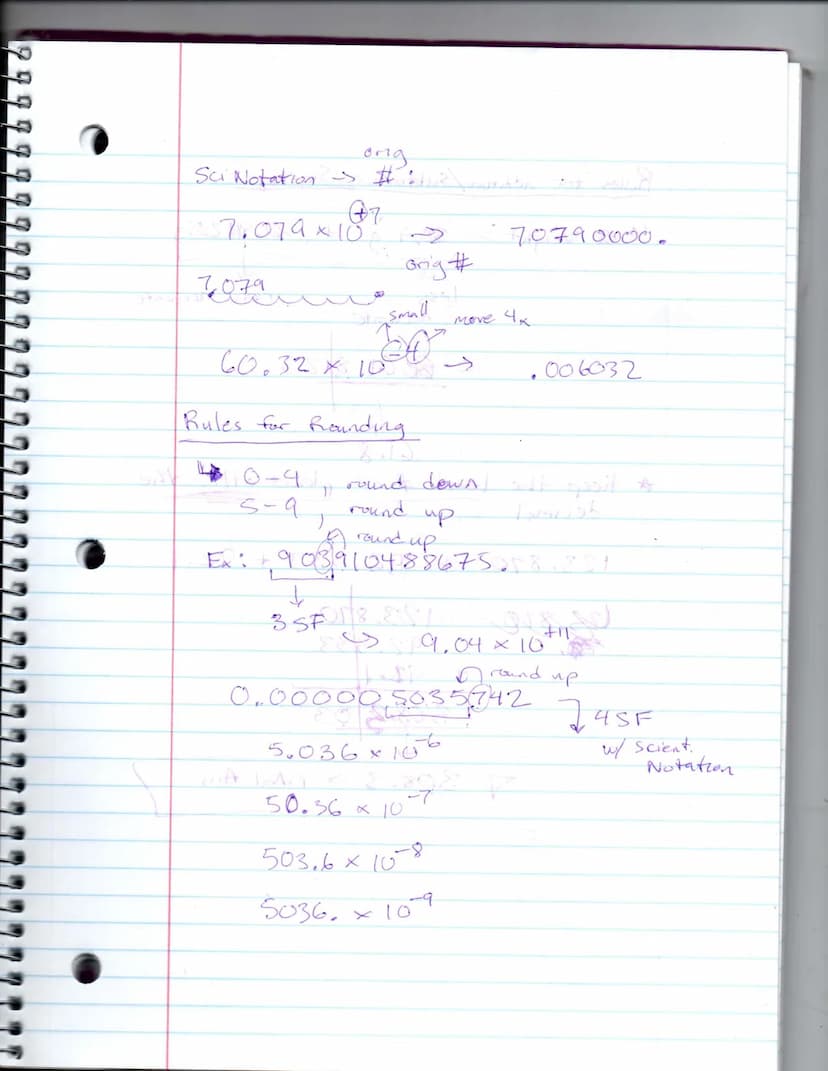 orig
Sci Notation → #:
7.079 × 10⁺⁷ → 70790000.
orig #
7.079
small move 4x
60.32 × 10⁻⁴ → .006032
Rules for Rounding
↳ 0-4, round down
5-9, round up
round up
Ex: 903910488675.
↓
3 SF
↪ 9.04 × 10⁺¹¹
round up
0.000005035742
4 SF
5.036 × 10⁻⁶
w/ Scient.
Notation
50.36 × 10⁻⁷
503.6 × 10⁻⁸
5036. × 10⁻⁹